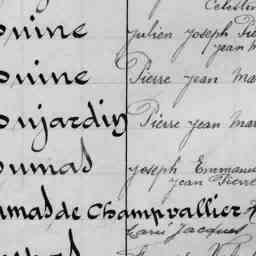 Celestin
ouine Julien Joseph Pie
Jean M
ouine Pierre Jean Mar
oujardin Pierre Jean Mar
oumas Joseph Emmanu
Jean Pierre
umas de Champvallier
Carié Jacques